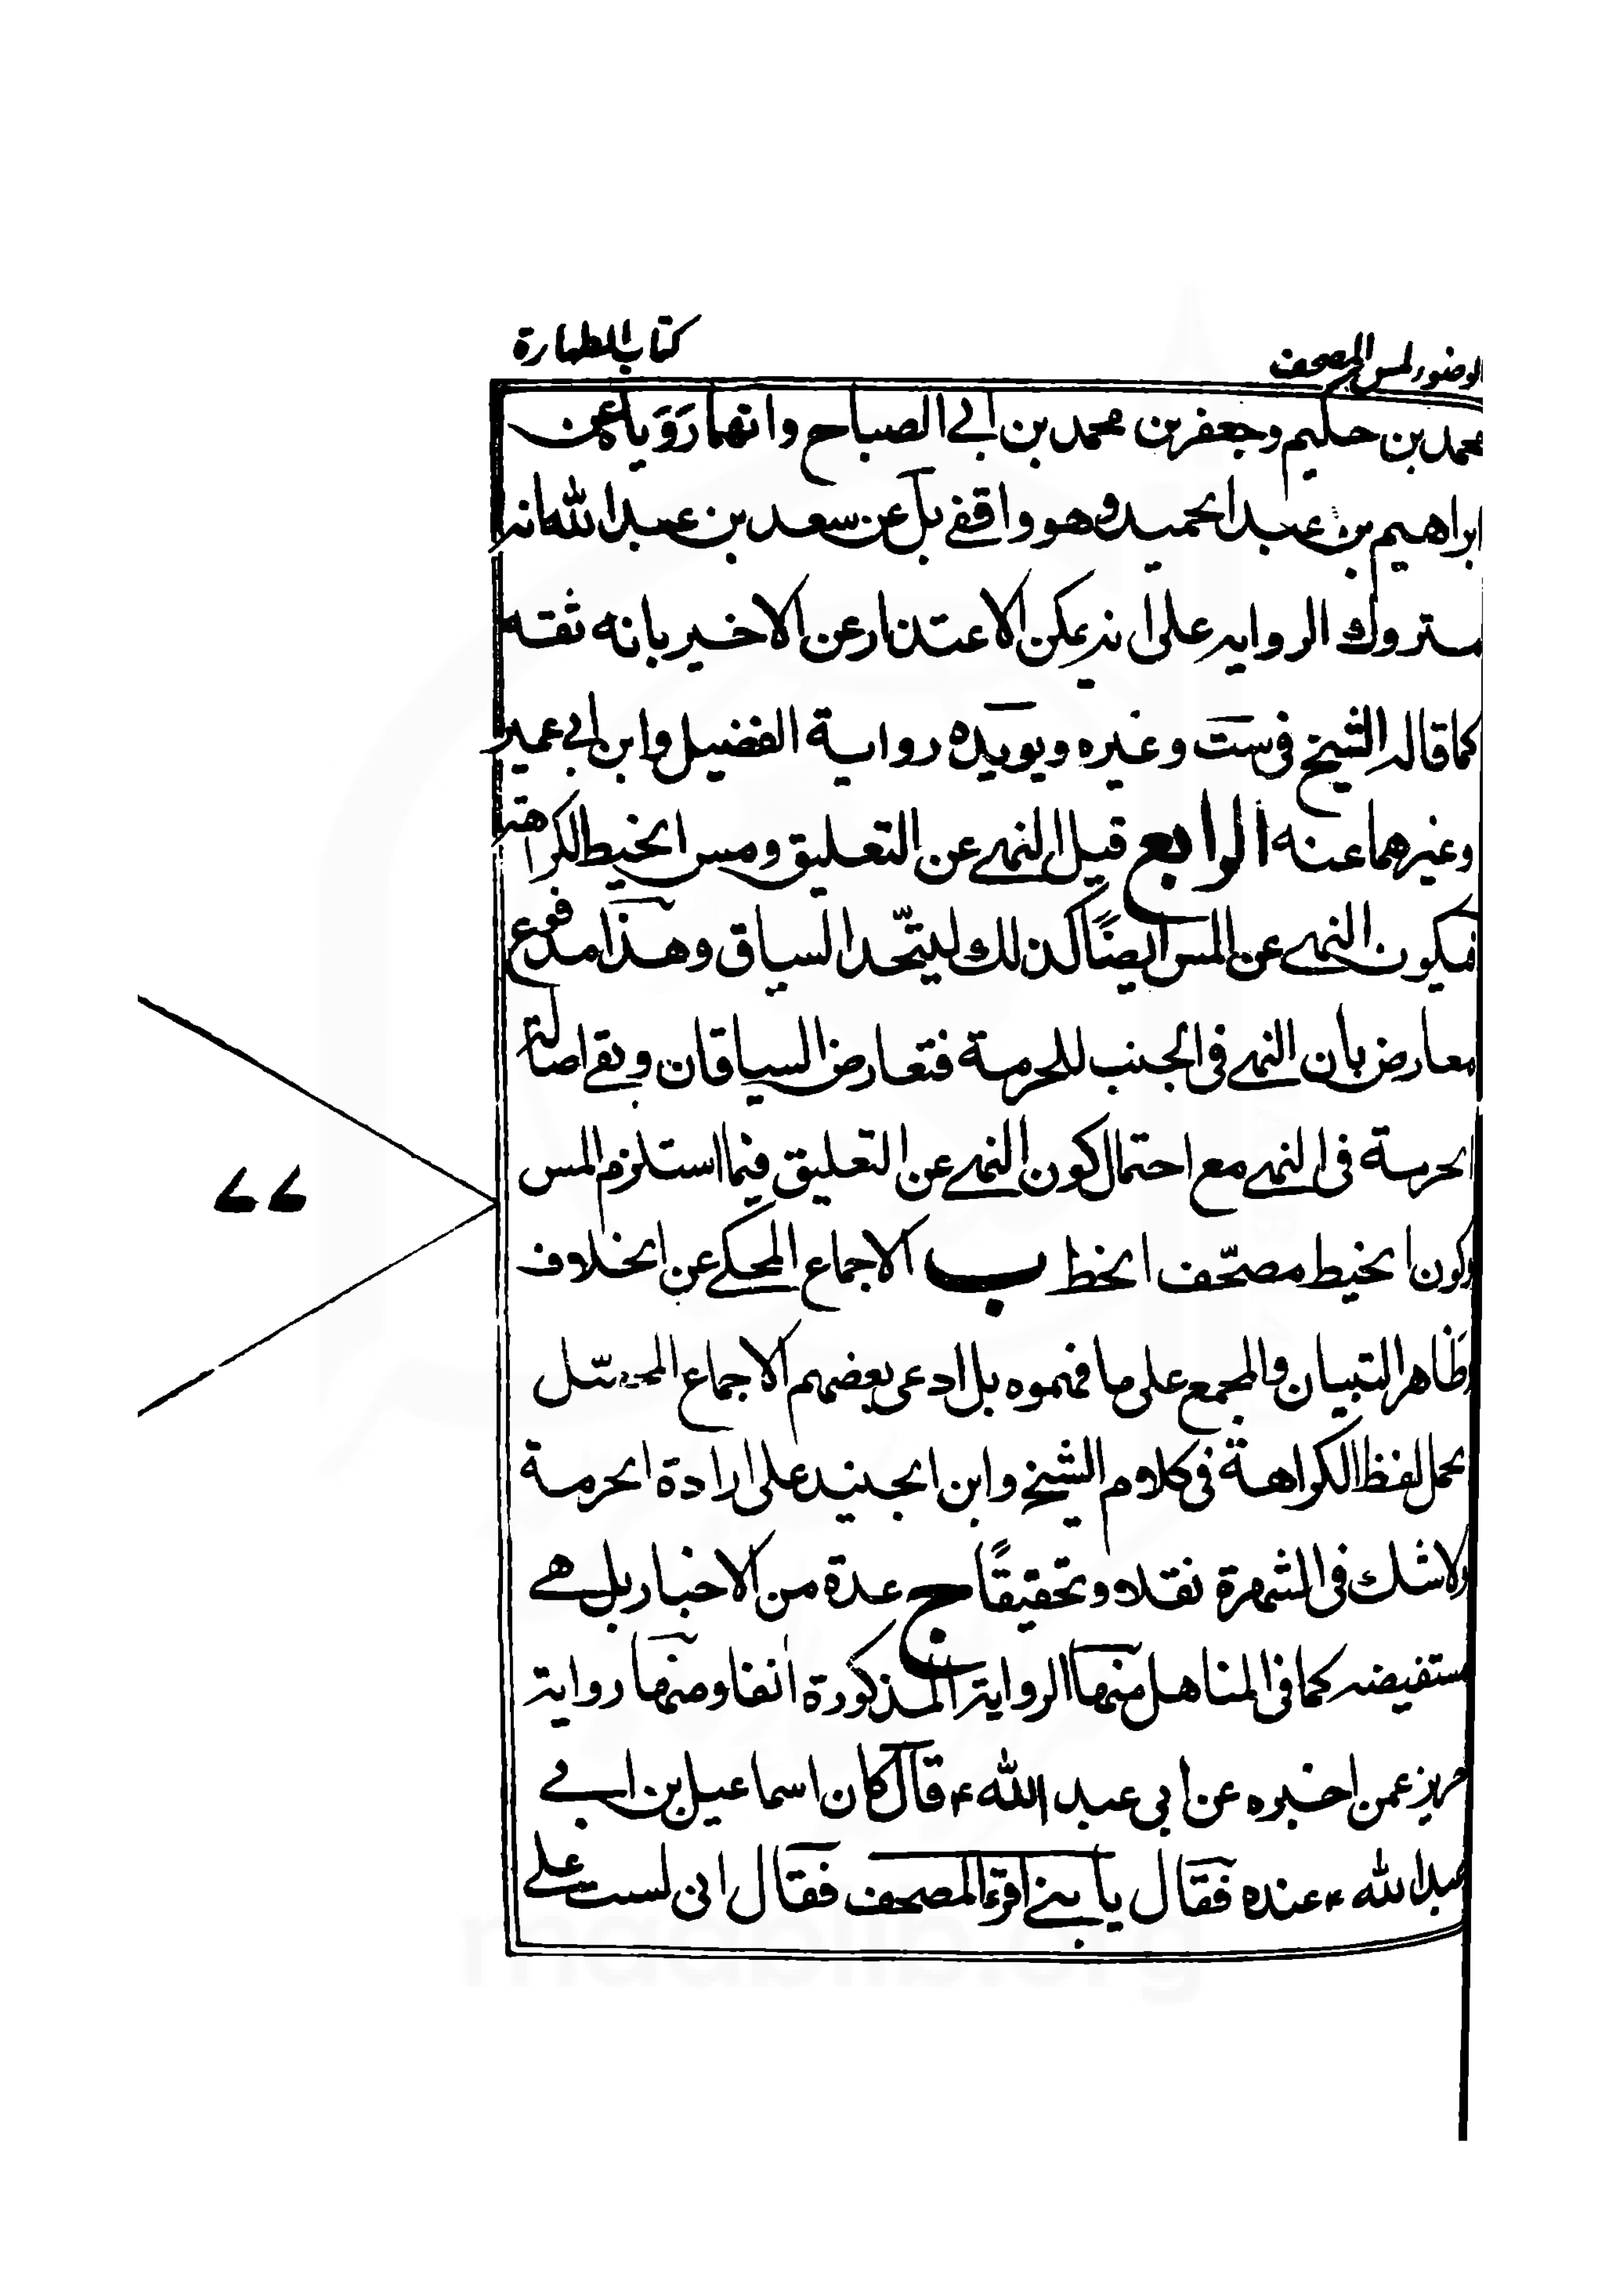 الوضوء لمس المصحف
كتاب الطهارة
محمد بن حكيم وجعفر بن محمد بن ابي الصباح وانهما رويا عن
ابراهيم بن عبد الحميد وهو واقفے بل عن سعد بن عبد الله انه
متروك الروايه على انه يمكن الاعتذار عن الاخير بانه ثقه
كما قاله الشيخ في ست وغيره ويويده رواية الفضيل وابن ابي عمير
وغيرهما عنه الرابع قيل النهے عن التعليق ومس الخيط للكراهة
فيكون النهے عن المس ايضًا كذلك ليتّحد السياق وهذا مدفوع
معارض بان النهے في الجنب للحرمة فتعارض السياقان وبقے اصالة
الحرمة في النهے مع احتمال كون النهے عن التعليق فيما استلزم المس
وكون الخيط مصحّف الخط ب الاجماع المحكے عن الخلاف
وظاهر التبيان والمجمع على ما فهموه بل ادعى بعضهم الاجماع المحصّل
بحمل لفظ الكراهة في كلام الشيخ وابن الجنيد على ارادة الحرمة
ولا شك في الشهرة نقلا وتحقيقًا ج عدة من الاخبار بل هے
مستفيضه كما في المناهل منها الرواية المذكورة انفا ومنها رواية
حريز عمن اخبره عن ابي عبد الله ء قال كان اسماعيل بن ابے
عبد الله ء عنده فقال يا بنے اقرء المصحف فقال انى لست علے
۶۶
maablib.org